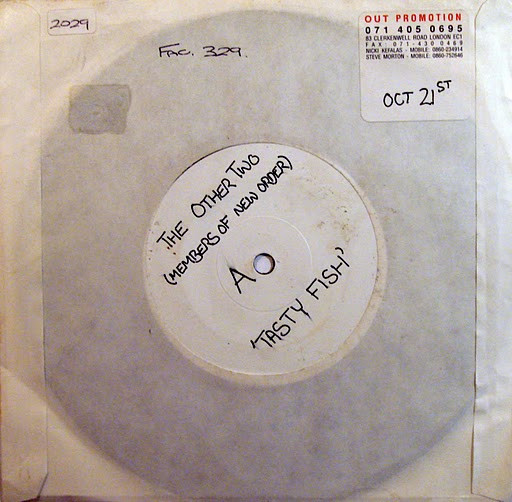 2029
FAC. 329.
OUT PROMOTION
071 405 0695
83 CLERKENWELL ROAD LONDON EC1
FAX: 071-430 0469
NICKI KEFALAS - MOBILE: 0860-234914
STEVE MORTON - MOBILE: 0860-752646
OCT 21ST
THE OTHER TWO
(MEMBERS OF NEW ORDER)
A
'TASTY FISH'